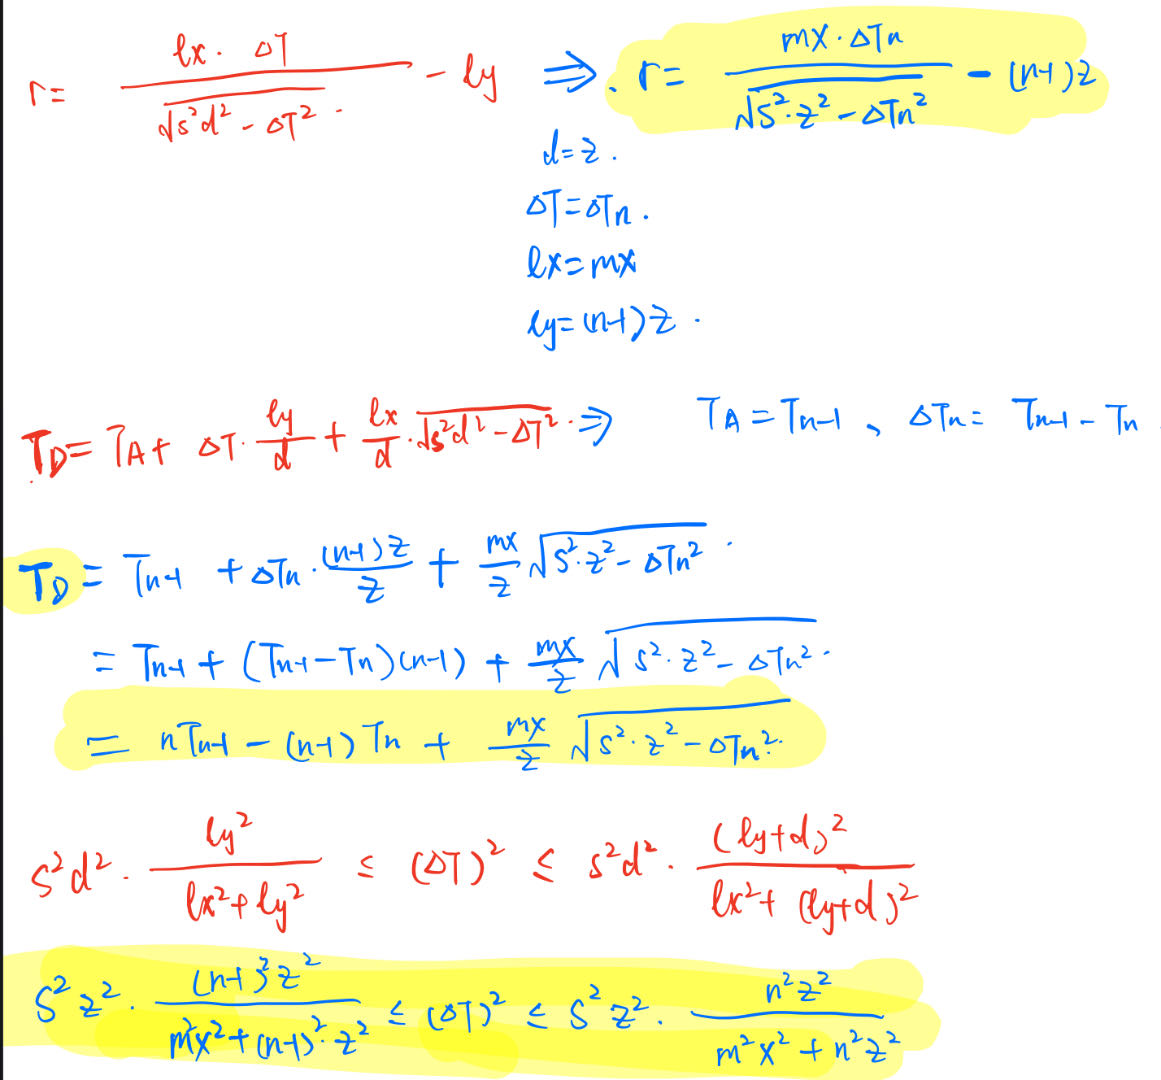 r = lx · ΔT / √(s²d² - ΔT²) - ly ⇒ r = mx · ΔTn / √(s²·z² - ΔTn²) - (n-1)z
d = z .
ΔT = ΔTn .
lx = mx
ly = (n-1)z .
T_D = T_A + ΔT · ly/d + lx/d · √(s²d² - ΔT²) ⇒ T_A = Tn-1 、 ΔTn = Tn-1 - Tn
T_D = Tn-1 + ΔTn · (n-1)z/z + mx/z √(s²·z² - ΔTn²)
= Tn-1 + (Tn-1 - Tn)(n-1) + mx/z √(s²·z² - ΔTn²)
= nTn-1 - (n-1)Tn + mx/z √(s²·z² - ΔTn²)
s²d² · ly²/(lx² + ly²) ≤ (ΔT)² ≤ s²d² · (ly+d)²/(lx² + (ly+d)²)
s²z² · (n-1)²z²/(m²x² + (n-1)²·z²) ≤ (ΔT)² ≤ s²z² · n²z²/(m²x² + n²z²)